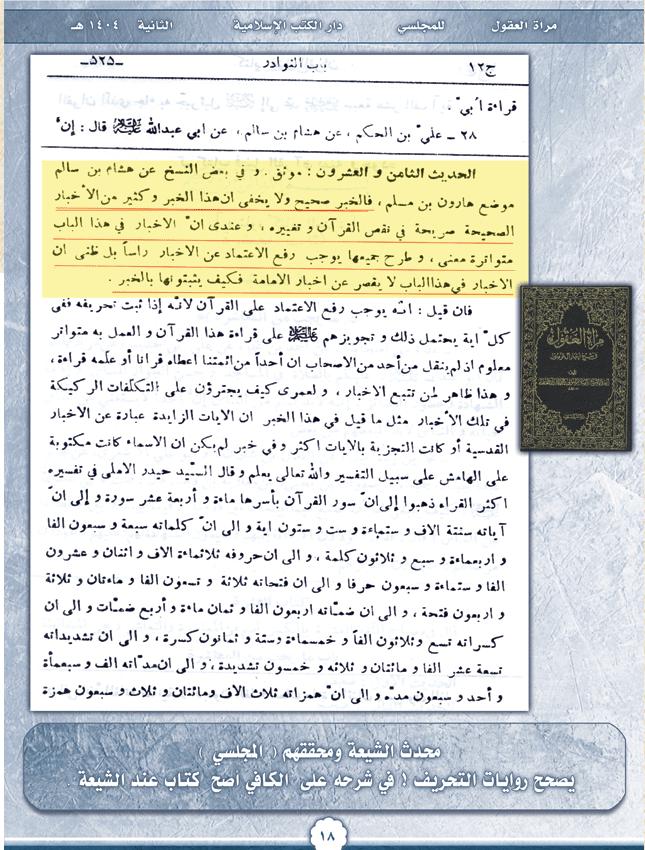 مرآة العقول للمجلسي دار الكتب الإسلامية الثانية ١٤٠٤ هـ
ج١٢ باب النوادر -٥٢٥-
قراءة اُبيّ .
٢٨ ـ عليّ بن الحكم ، عن هشام بن سالم ، عن ابي عبدالله عليه السلام قال : إنّ
الحديث الثامن و العشرون : موثق . و في بعض النسخ عن هشام بن سالم
موضع هارون بن مسلم ، فالخبر صحيح ولا يخفى ان هذا الخبر و كثير من الأخبار
الصحيحة صريحة في نقص القرآن و تغييره ، و عندى انّ الاخبار في هذا الباب
متواترة معنى ، و طرح جميعها يوجب رفع الاعتماد عن الاخبار رأساً بل ظنى ان
الاخبار في هذا الباب لا يقصر عن اخبار الامامة فكيف يثبتونها بالخبر .
فان قيل : انّه يوجب رفع الاعتماد على القرآن لانّه إذا ثبت تحريفه ففى
كلّ آية يحتمل ذلك و تجويزهم عليهم السلام على قراءة هذا القرآن و العمل به متواتر
معلوم اذ لم ينقل من أحد من الاصحاب ان أحداً من ائمتنا اعطاه قرانا أو علّمه قراءة ،
و هذا ظاهر لمن تتبع الاخبار ، و لعمرى كيف يجترؤن على التكلّفات الركيكة
في تلك الأخبار مثل ما قيل في هذا الخبر ان الايات الزايدة عبارة عن الاخبار
القدسية أو كانت التجزية بالايات اكثر و في خبر لم يكن ان الاسماء كانت مكتوبة
على الهامش على سبيل التفسير والله تعالى يعلم و قال السيّد حيدر الاملى في تفسيره
اكثر القراء ذهبوا إلى انّ سور القرآن بأسرها ماءة و أربعة عشر سورة و إلى انّ
آياته ستة الاف و ستماءة و ست و ستون اية و الى انّ كلماته سبعة و سبعون الفا
و اربعماءة و سبع و ثلاثون كلمة ، و الى ان حروفه ثلاثماءة الاف و اثنان و عشرون
الفا و ستماءة و سبعون حرفا و الى ان فتحاته ثلاثة و تسعون الفا و مائتان و ثلاثة
و اربعون فتحة ، و الى ان ضمّاته اربعون الفا و ثمان ماءة و أربع ضمّات و الى ان
كسراته تسع و ثلاثون الفاً و خمسماءة و ستة و ثمانون كسرة ، و الى ان تشديداته
تسعة عشر الفا و مائتان و ثلاثه و خمسون تشديدة ، و الى ان مدّاته الف و سبعمأة
و أحد و سبعون مدّه و الى انّ همزاته ثلاث الاف ومائتان و ثلاث و سبعون همزة
مرآة العقول
محدث الشيعة ومحققهم ( المجلسي )
يصحح روايات التحريف ! في شرحه على الكافي اصح كتاب عند الشيعة .
١٨